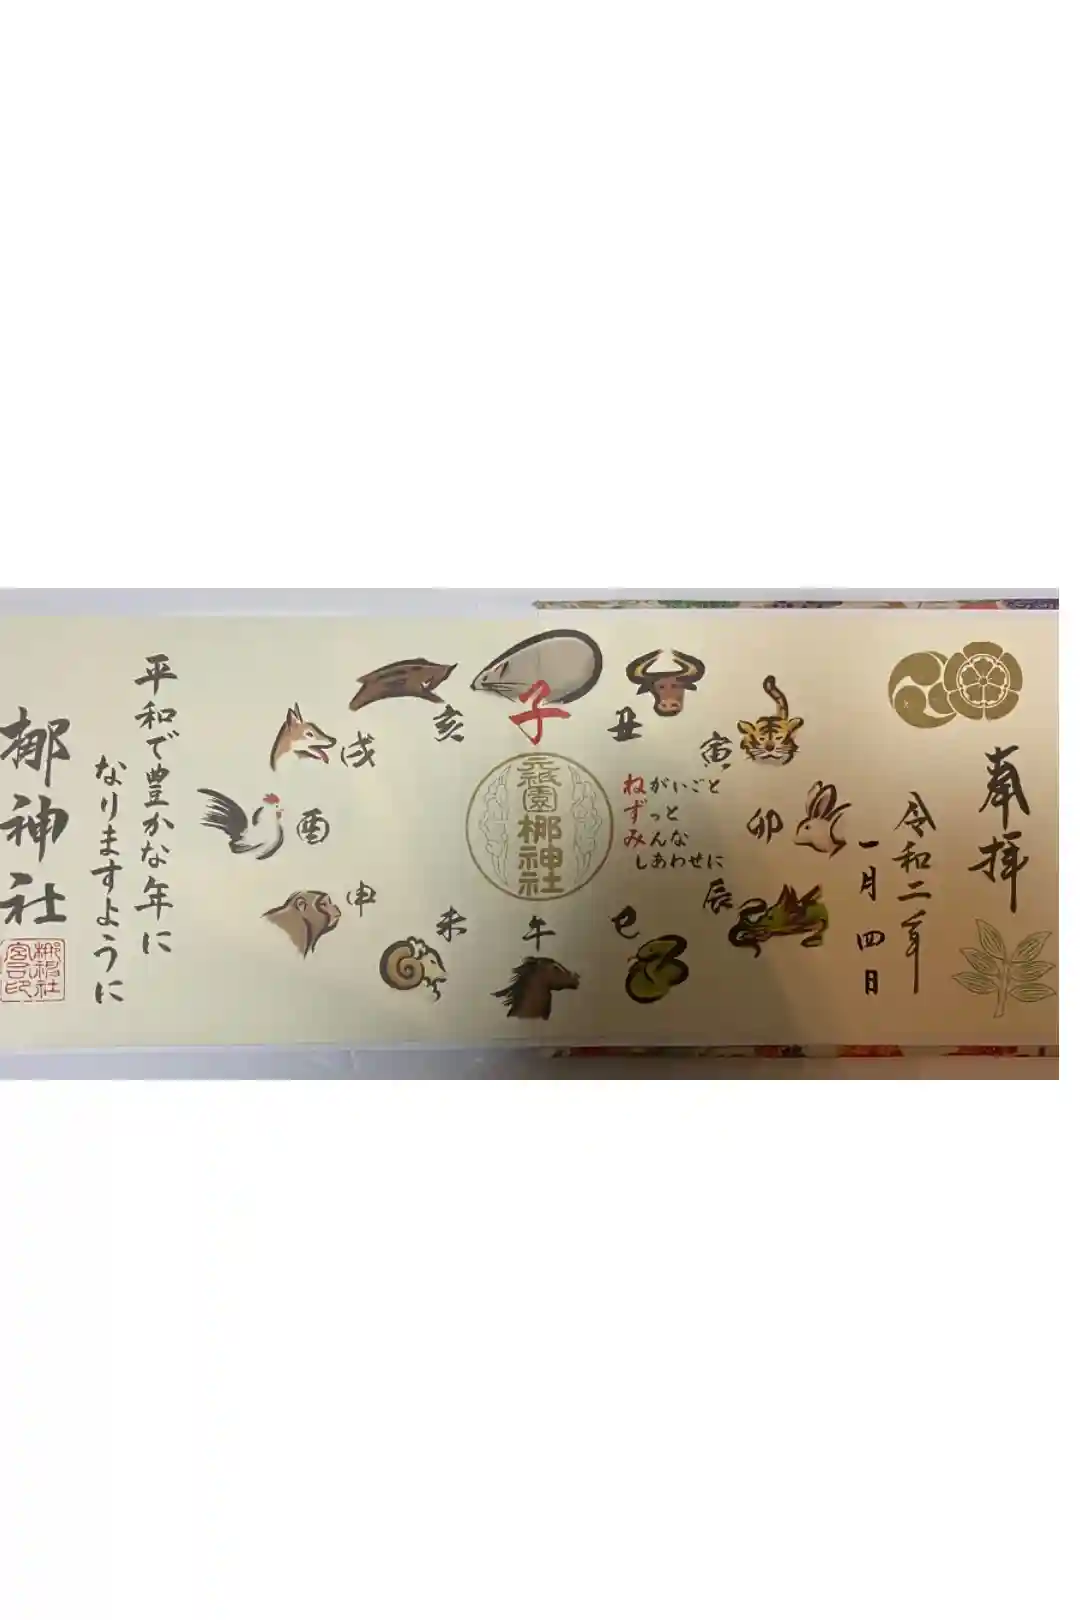 奉拝
令和二年
一月四日
子
丑
寅
卯
辰
巳
午
未
申
酉
戌
亥
元祇園
梛神社
ねがいごと
ずっと
みんな
しあわせに
平和で豊かな年に
なりますように
梛神社